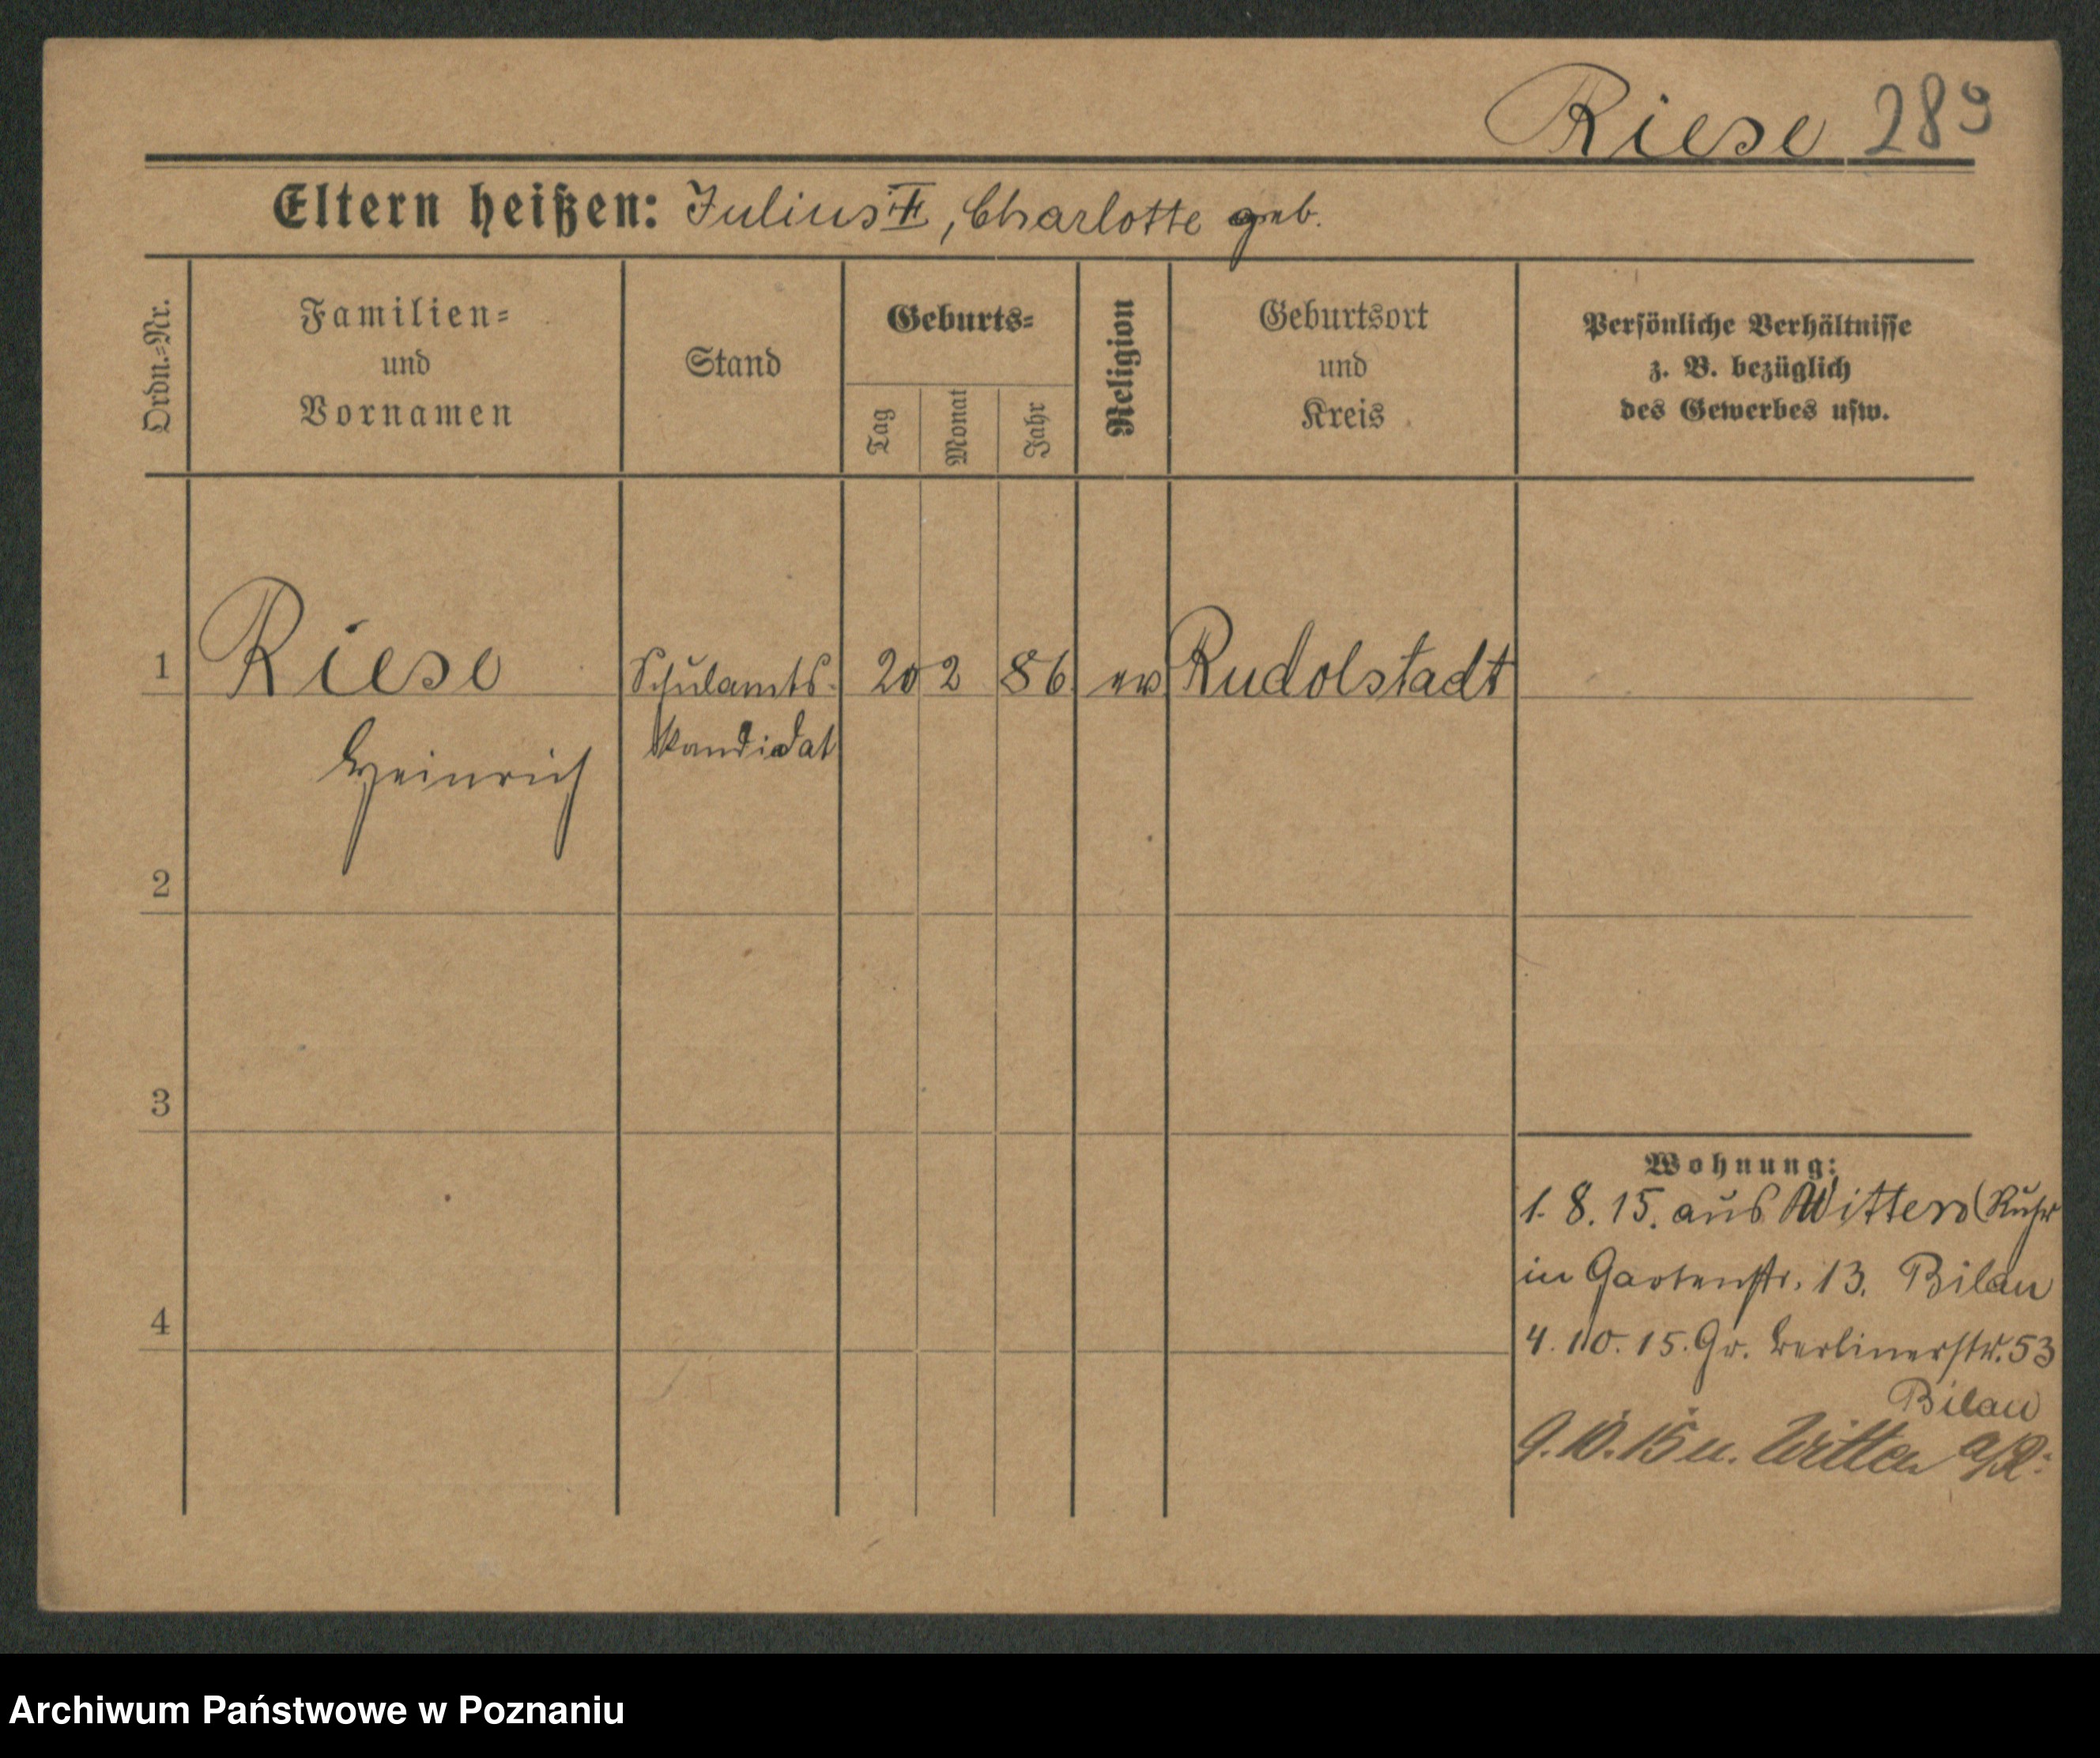 Riese 289
Eltern heißen: Julius, Charlotte geb.
Ordn.=Nr.
Familien=
und
Vornamen
Stand
Geburts=
Tag
Monat
Jahr
Religion
Geburtsort
und
Kreis
Persönliche Verhältnisse
z. B. bezüglich
des Gewerbes usw.
1 Riese Schulamts- 20 2 86 ev Rudolstadt
Heinrich kandidat
2
3
4
Wohnung:
1. 8. 15. aus Witten (Ruhr
in Gartenstr. 13. Bilau
4. 10. 15. Gr. Berlinerstr. 53
Bilau
9. 10. 15 n. Witten a/R.
Archiwum Państwowe w Poznaniu